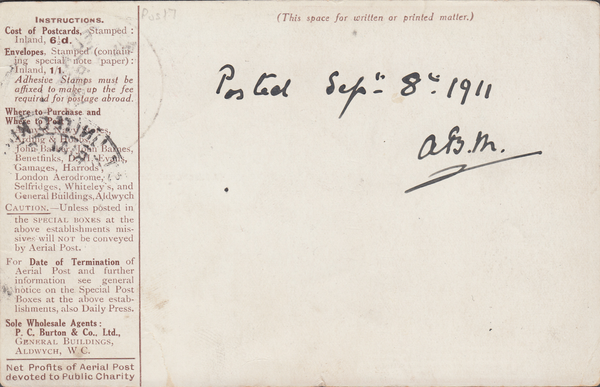 Pos17
(This space for written or printed matter.)
INSTRUCTIONS.
Cost of Postcards, Stamped:
Inland, 6½d.
Envelopes, Stamped (contain-
ing special note paper):
Inland, 1/1.
Adhesive Stamps must be
affixed to make up the fee
required for postage abroad.
Where to Purchase and
Where to Post
Arding & Hobbs,
John Barker, John Barnes,
Benetfinks, D. H. Evans,
Gamages, Harrods,
London Aerodrome,
Selfridges, Whiteley's, and
General Buildings, Aldwych
CAUTION.—Unless posted in
the SPECIAL BOXES at the
above establishments mis-
sives will NOT be conveyed
by Aerial Post.
For Date of Termination of
Aerial Post and further
information see general
notice on the Special Post
Boxes at the above estab-
lishments, also Daily Press.
Sole Wholesale Agents:
P. C. Burton & Co., Ltd.,
GENERAL BUILDINGS,
ALDWYCH, W.C.
Net Profits of Aerial Post
devoted to Public Charity
Posted Sepr 8th 1911
A.B.M.